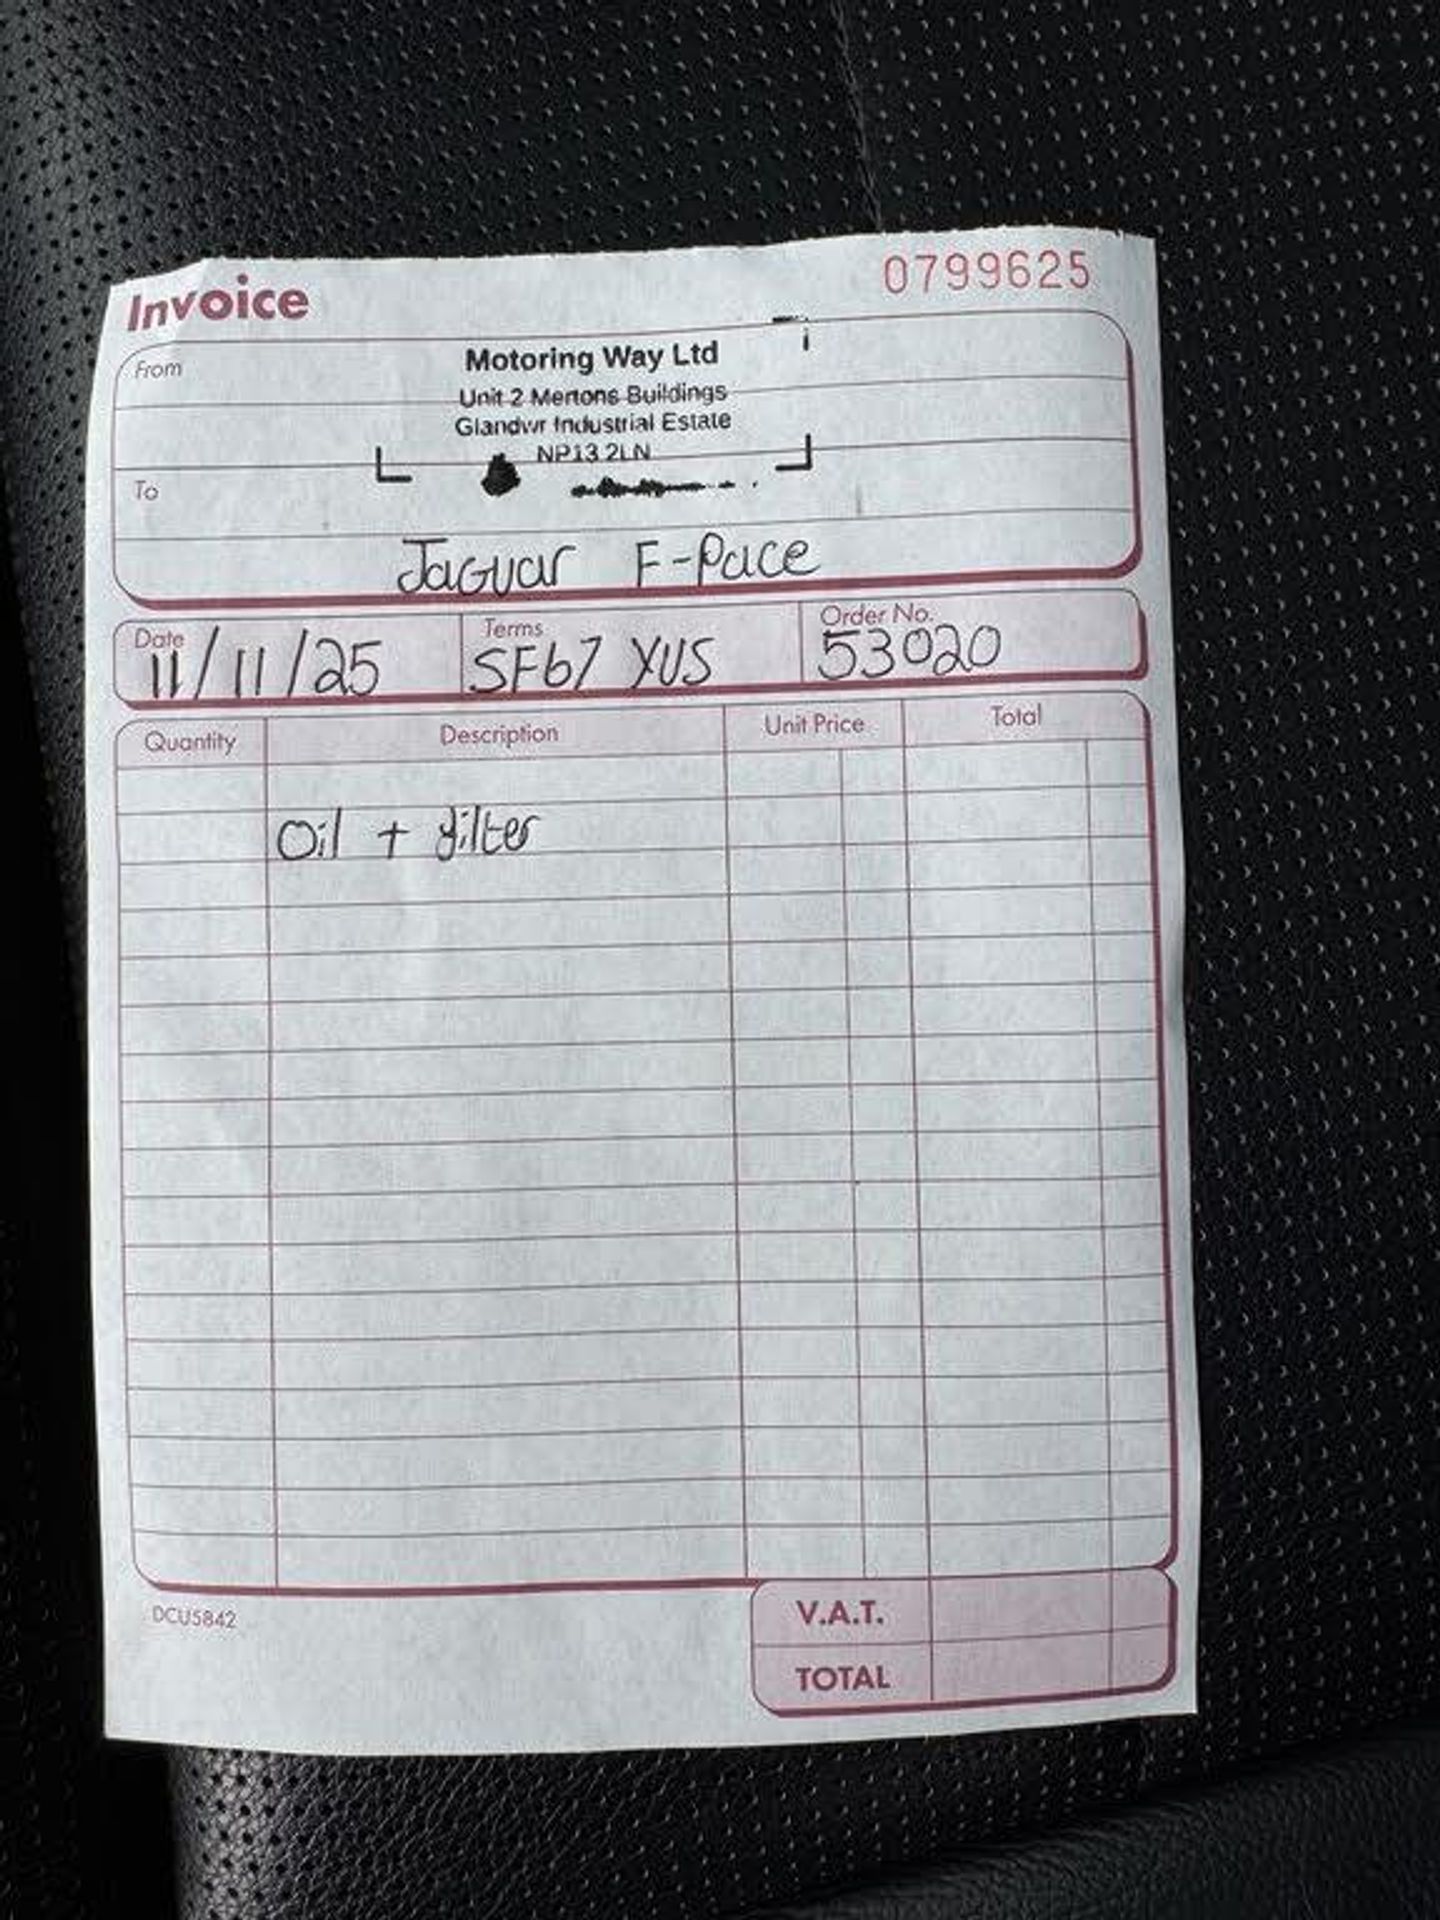 Invoice
0799625
From
Motoring Way Ltd
Unit 2 Mertons Buildings
Glandwr Industrial Estate
NP13 2LN
To
Jaguar F-Pace
Date
Terms
Order No.
11/11/25
SF67 XUS
53020
Quantity
Description
Unit Price
Total
Oil + filter
DCU5842
V.A.T.
TOTAL